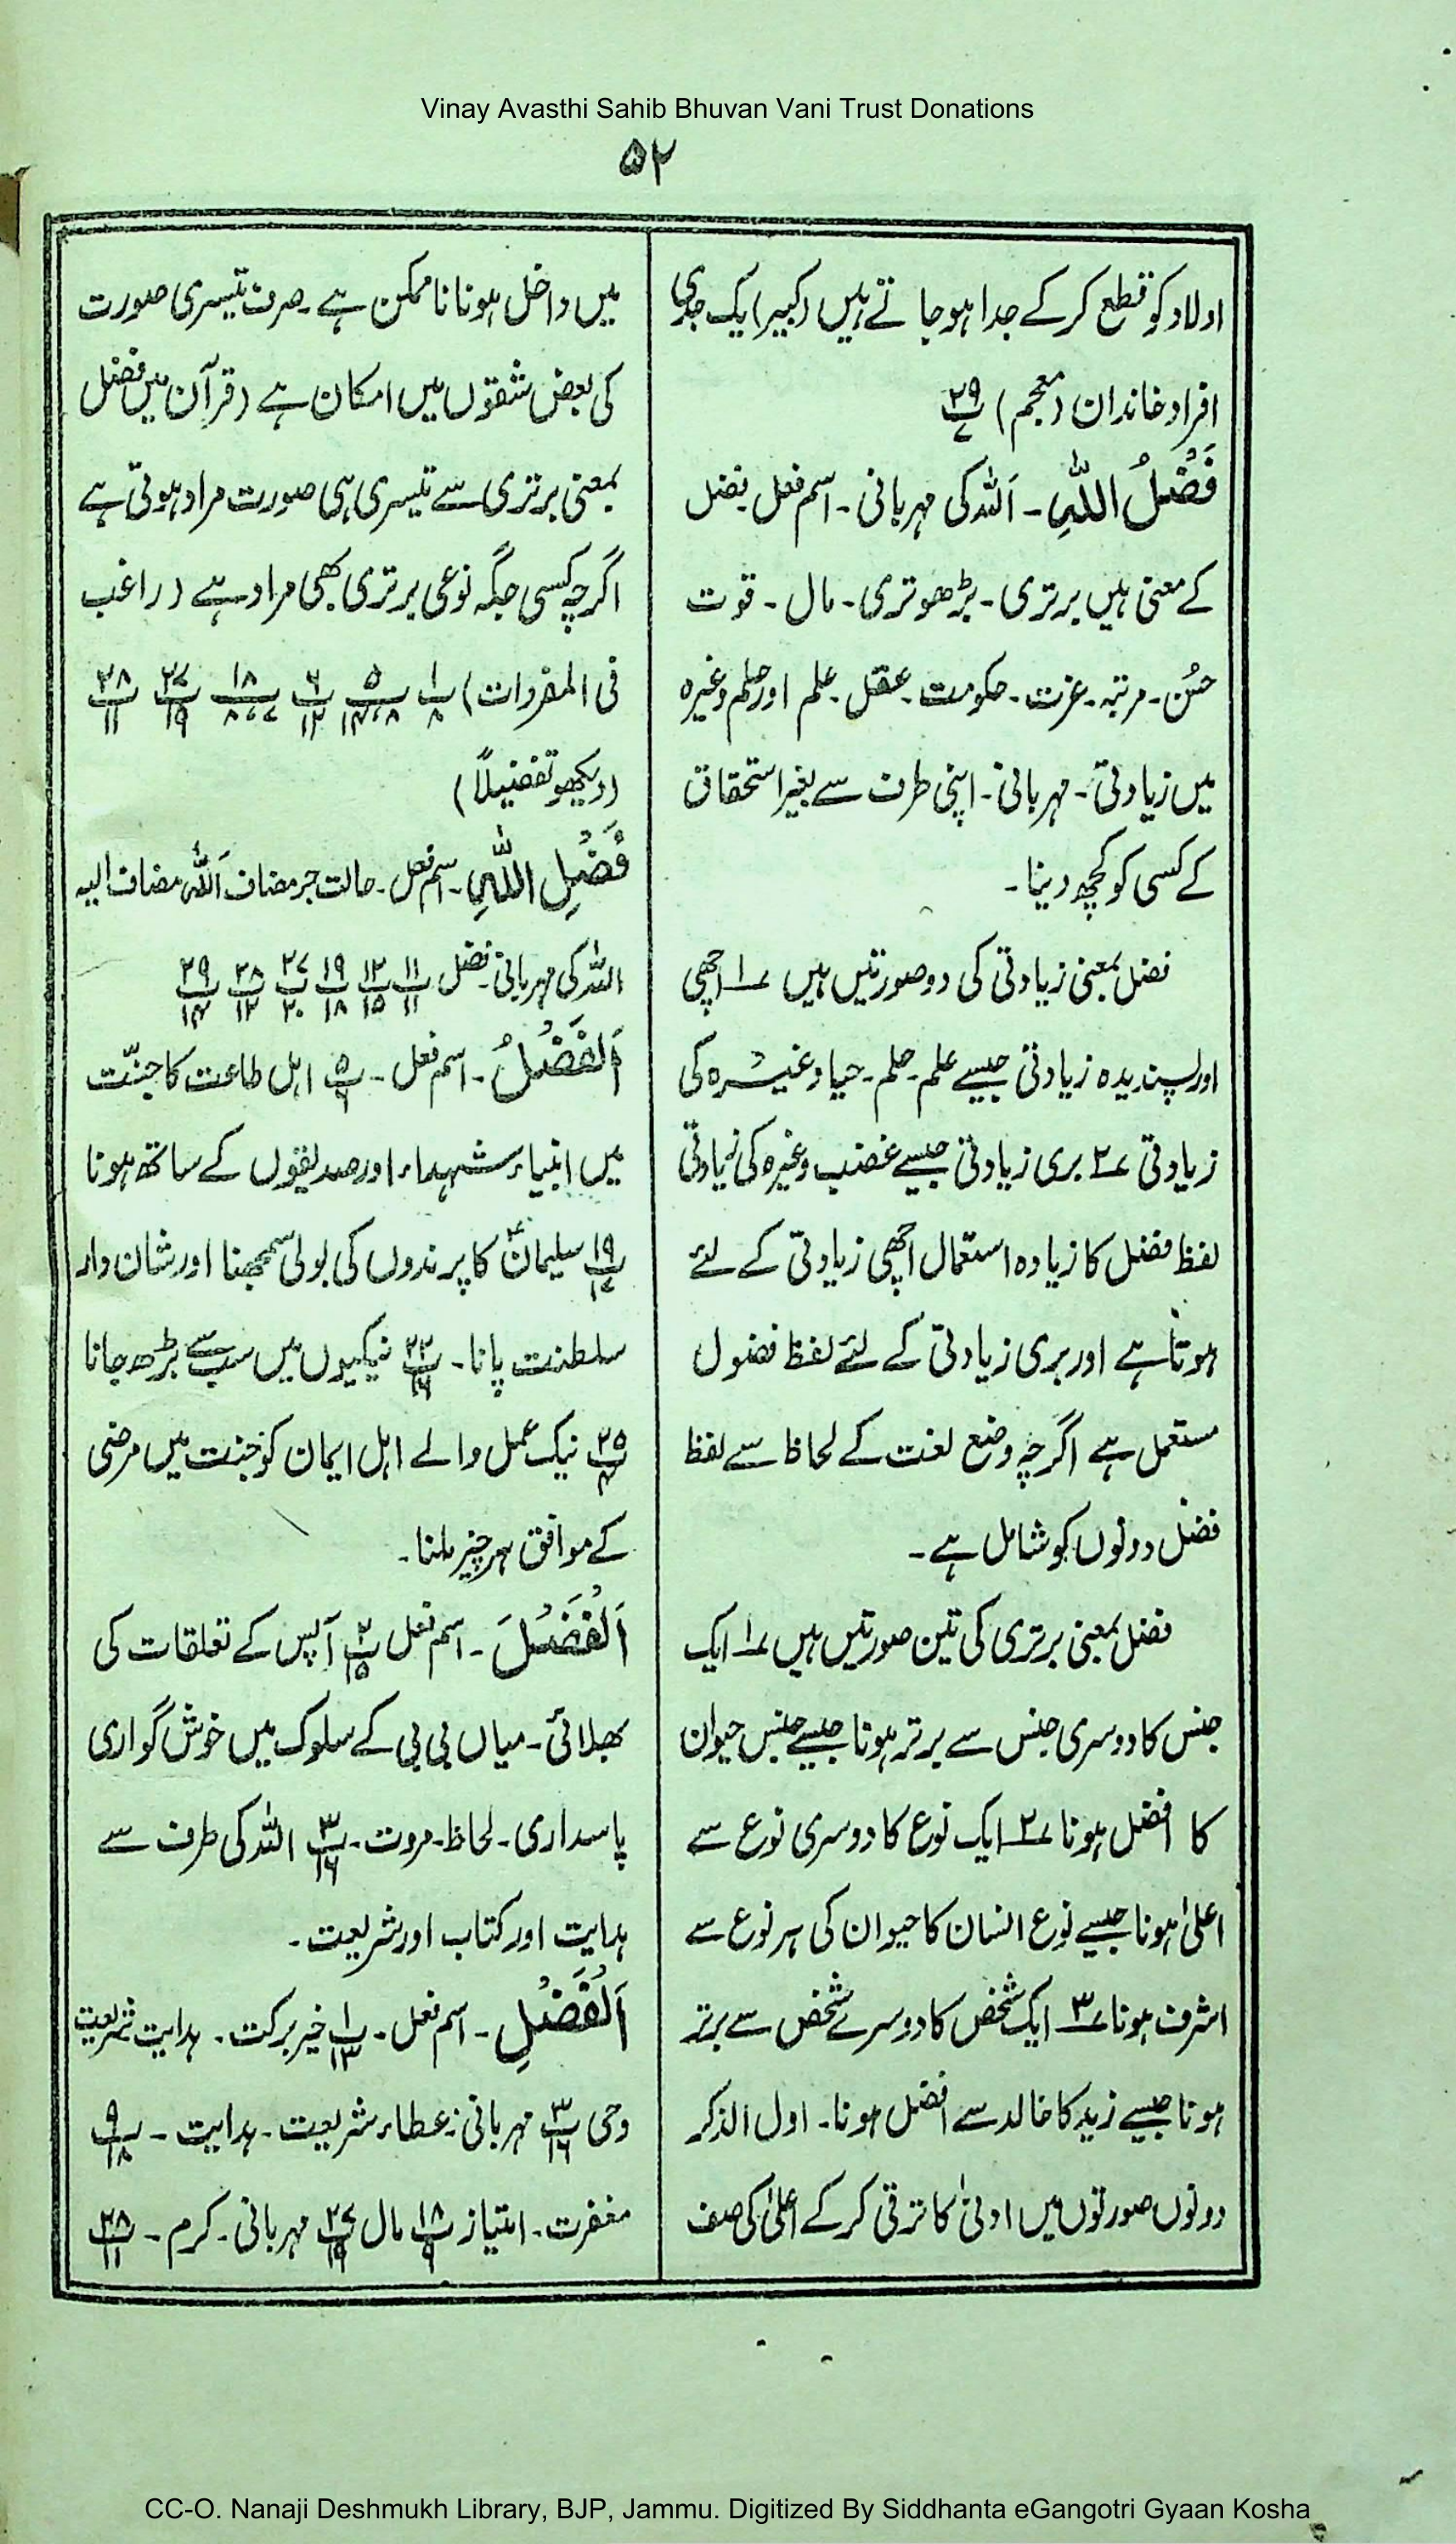 Vinay Avasthi Sahib Bhuvan Vani Trust Donations
۵۲
اولاد کو قطع کرکے جدا ہو جاتے ہیں (کبیر) یک جدی
افراد خاندان (معجم) ۲۹/۷
فَضْلُ اللّٰہِ۔ اَللہ کی مہربانی۔ اسم فعل۔ فضل
کے معنی ہیں برتری۔ بڑھوتری۔ مال۔ قوت
حُسن۔ مرتبہ۔ عزت۔ حکومت۔ عقل۔ علم اور حلم وغیرہ
میں زیادتی۔ مہربانی۔ اپنی طرف سے بغیر استحقاق
کے کسی کو کچھ دینا۔
فضل بمعنی زیادتی کی دو صورتیں ہیں ۱؎ اچھی
اور پسندیدہ زیادتی جیسے علم۔ حلم۔ حیا وغیرہ کی
زیادتی ۲؎ بری زیادتی جیسے غضب وغیرہ کی زیادتی
لفظ فضل کا زیادہ استعمال اچھی زیادتی کے لئے
ہوتا ہے اور بری زیادتی کے لئے لفظ فضول
مستعمل ہے اگرچہ وضع لغت کے لحاظ سے لفظ
فضل دونوں کو شامل ہے۔
فضل بمعنی برتری کی تین صورتیں ہیں ۱؎ ایک
جنس کا دوسری جنس سے برتر ہونا جیسے جنس حیوان
کا افضل ہونا ۲؎ ایک نوع کا دوسری نوع سے
اعلیٰ ہونا جیسے نوع انسان کا حیوان کی ہر نوع سے
اشرف ہونا ۳؎ ایک شخص کا دوسرے شخص سے برتر
ہونا جیسے زید کا خالد سے افضل ہونا۔ اول الذکر
دونوں صورتوں میں ادنیٰ کا ترقی کرکے اعلیٰ کی صف
میں داخل ہونا ناممکن ہے۔ صرف تیسری صورت
کی بعض شقوں میں امکان ہے (قرآن میں فضل
بمعنی برتری سے تیسری ہی صورت مراد ہوتی ہے
اگرچہ کسی جگہ نوعی برتری بھی مراد ہے (راغب
فی المفردات) پ۱/۸ پ۵/۸،۱۴ پ۶/۱۲ پ۱۸/۷،۸ پ۲۷/۱۹ پ۲۸/۱۱
(دیکھو تفضیلاً)
فَضْلِ اللّٰہِ۔ اسم فعل۔ حالت جر مضاف اَللہ مضاف الیہ
اللہ کی مہربانی۔ فضل پ۱۱/۱۱ پ۱۲/۱۵ پ۱۹/۱۸ پ۲۷/۲۰ پ۲۸/۱۲ پ۲۹/۱۴
اَلْفَضْلُ۔ اسم فعل۔ پ۵/۶ اہل طاعت کا جنّت
میں انبیاء، شہداء اور صدیقوں کے ساتھ ہونا
پ۱۹/۱۷ سلیمانؑ کا پرندوں کی بولی سمجھنا اور شان دار
سلطنت پانا۔ پ۲۲/۱۶ نیکیوں میں سب سے بڑھ جانا
پ۲۵/۴ نیک عمل والے اہل ایمان کو جنت میں مرضی
کے موافق ہر چیز ملنا۔
اَلْفَضْلَ۔ اسم فعل پ۲/۱۵ آپس کے تعلقات کی
بھلائی۔ میاں بی بی کے سلوک میں خوش گواری
پاسداری۔ لحاظ۔ مروت۔ پ۳/۱۶ اللہ کی طرف سے
ہدایت اور کتاب اور شریعت۔
اَلْفَضْلِ۔ اسم فعل۔ پ۱/۱۳ خیر برکت۔ ہدایت شریعت
وحی پ۳/۱۶ مہربانی۔ عطاء شریعت۔ ہدایت۔ پ۹/۱۸
مغفرت۔ امتیاز پ۱۸/۹ مال پ۲۷/۱۹ مہربانی۔ کرم۔ پ۲۸/۱۱
CC-O. Nanaji Deshmukh Library, BJP, Jammu. Digitized By Siddhanta eGangotri Gyaan Kosha